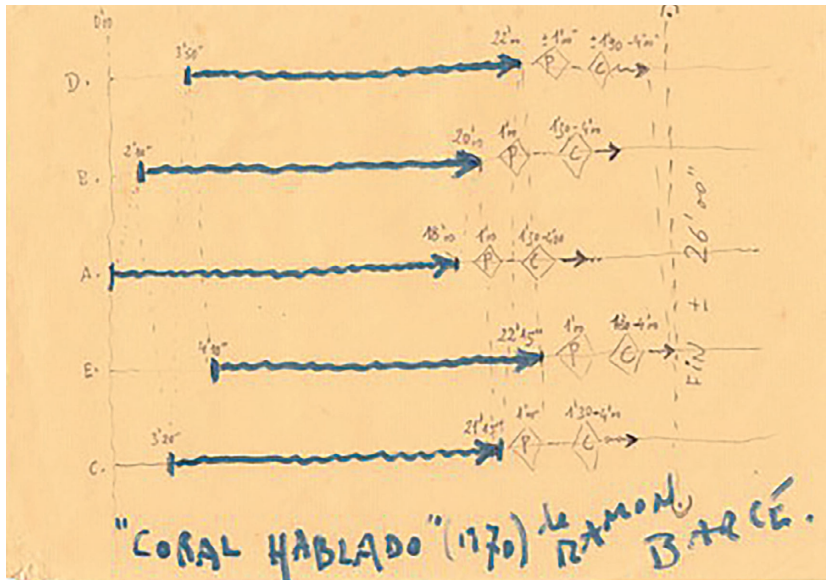 0'00
3'50" 22'00 ±1'00" ±1'30-4'00"
D. P C
2'10" 20'00 1'00 1'30-4'00
B. P C
18'00 1'00 1'30-4'00
A. P C
FIN ± 26'00"
4'10" 22'15" 1'00 1'30-4'00
E. P C
3'20" 21'15" 1'00" 1'30-4'00
C. P C
"CORAL HABLADO" (1970) de RAMON BARCÉ.